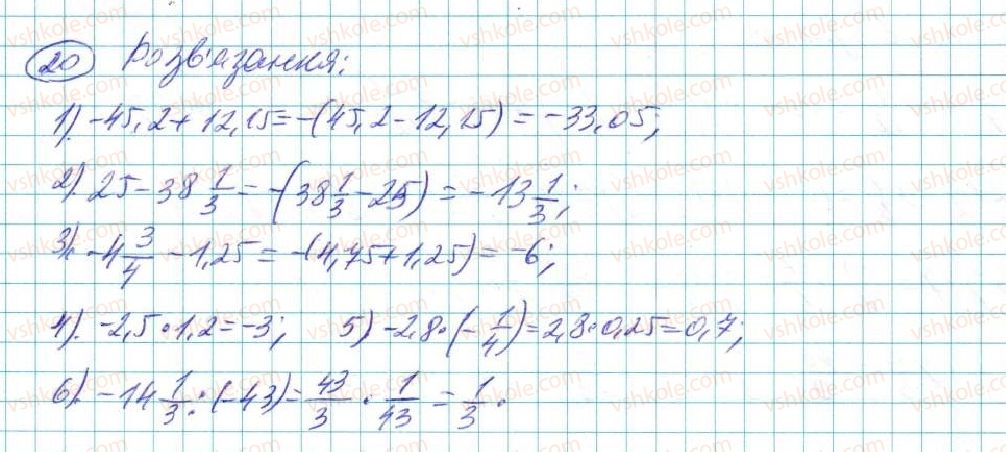 20 Розв'язання:
1) -45,2+12,15=-(45,2-12,15)=-33,05;
2) 25-38 1/3=-(38 1/3-25)=-13 1/3;
3) -4 3/4-1,25=-(4,75+1,25)=-6;
4) -2,5·1,2=-3; 5) -2,8·(-1/4)=2,8·0,25=0,7;
6) -14 1/3:(-43)=43/3·1/43=1/3.
vshkole.com